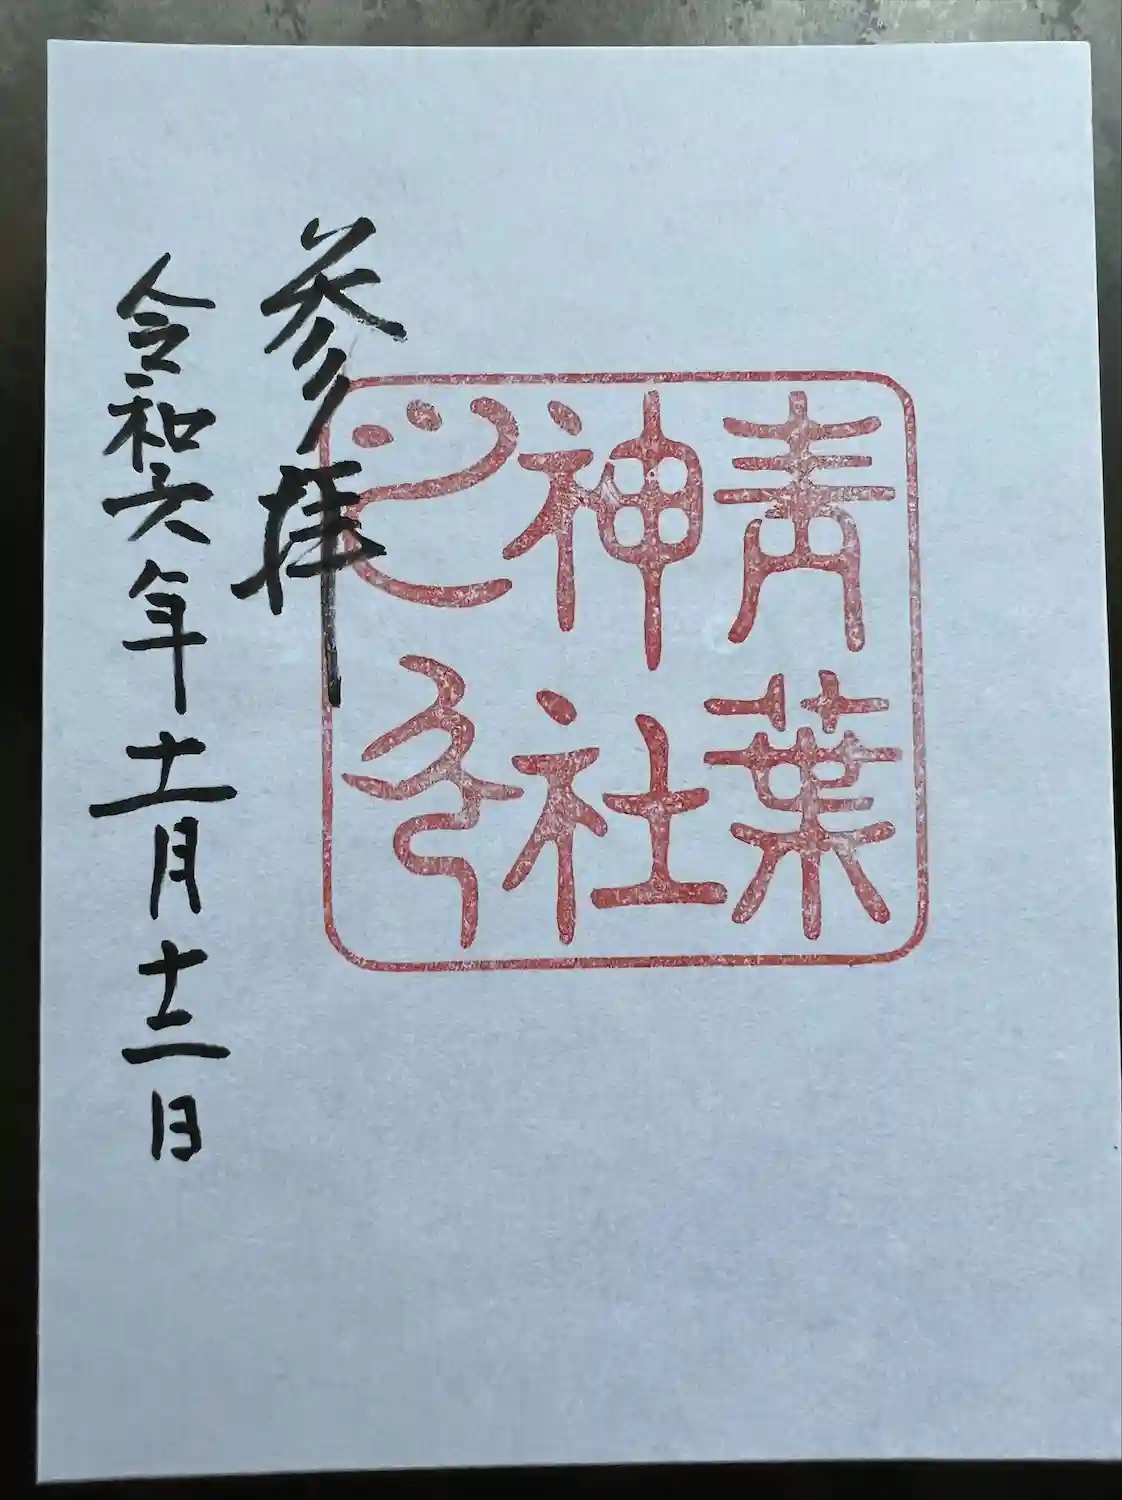 青葉
神社
之印
参拝
令和六年十一月十二日